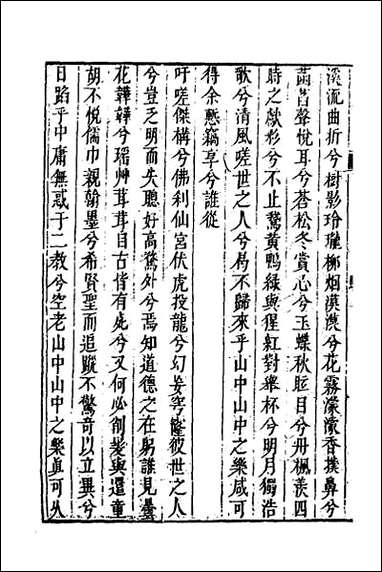 溪流曲折兮樹影玲瓏柳烟漠漠兮花霧濛濛香撲鼻兮
茵苔聲悅耳兮蒼松冬賞心兮玉蝶秋眩目兮丹楓羨四
時之獻彩兮不止鶩黃鴨綠與猩紅對舉杯兮明月獨浩
歌兮清風嗟世之人兮曷不歸來乎山中山中之樂咸可
得余懸竊享兮誰從
吁嗟傑構兮佛利仙宮伏虎投龍兮幻妄穹窿彼世之人
兮豈乏明而失聰好高騖外兮焉知道德之在躬誰見曇
花韡韡兮瑶艸茸茸自古皆有死兮又何必剃髮與還童
胡不悅儒巾親翰墨兮希賢聖而追蹤不驚奇以立異兮
日蹈乎中庸無惑于二教兮空老山中山中之樂眞可從